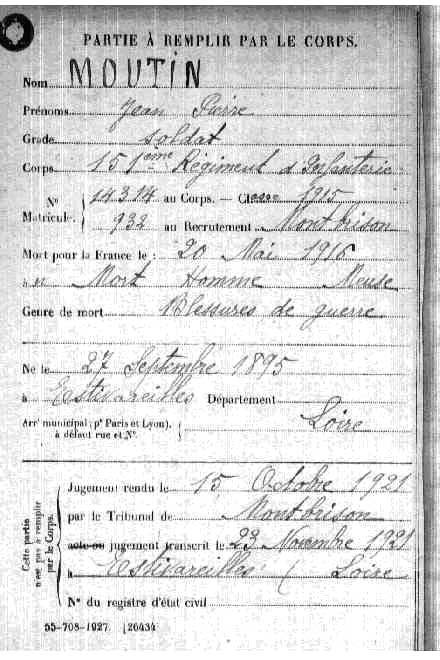 PARTIE À REMPLIR PAR LE CORPS.
Nom MOUTIN
Prénoms Jean Pierre
Grade soldat
Corps 151eme Régiment d'Infanterie
Nº 14314 au Corps. — Classe 1915
Matricule. 932 au Recrutement Montbrison
Mort pour la France le : 20 Mai 1916
à Mort Homme Meuse
Genre de mort Blessures de guerre
Né le 27 Septembre 1895
à Estivareilles Département
Arrt municipal (pr Paris et Lyon), Loire
à défaut rue et Nº.
Cette partie n'est pas à remplir par le Corps.
Jugement rendu le 15 Octobre 1921
par le Tribunal de Montbrison
acte ou jugement transcrit le 23 Novembre 1921
à Estivareilles (Loire
Nº du registre d'état civil
55-708-1927. [26434